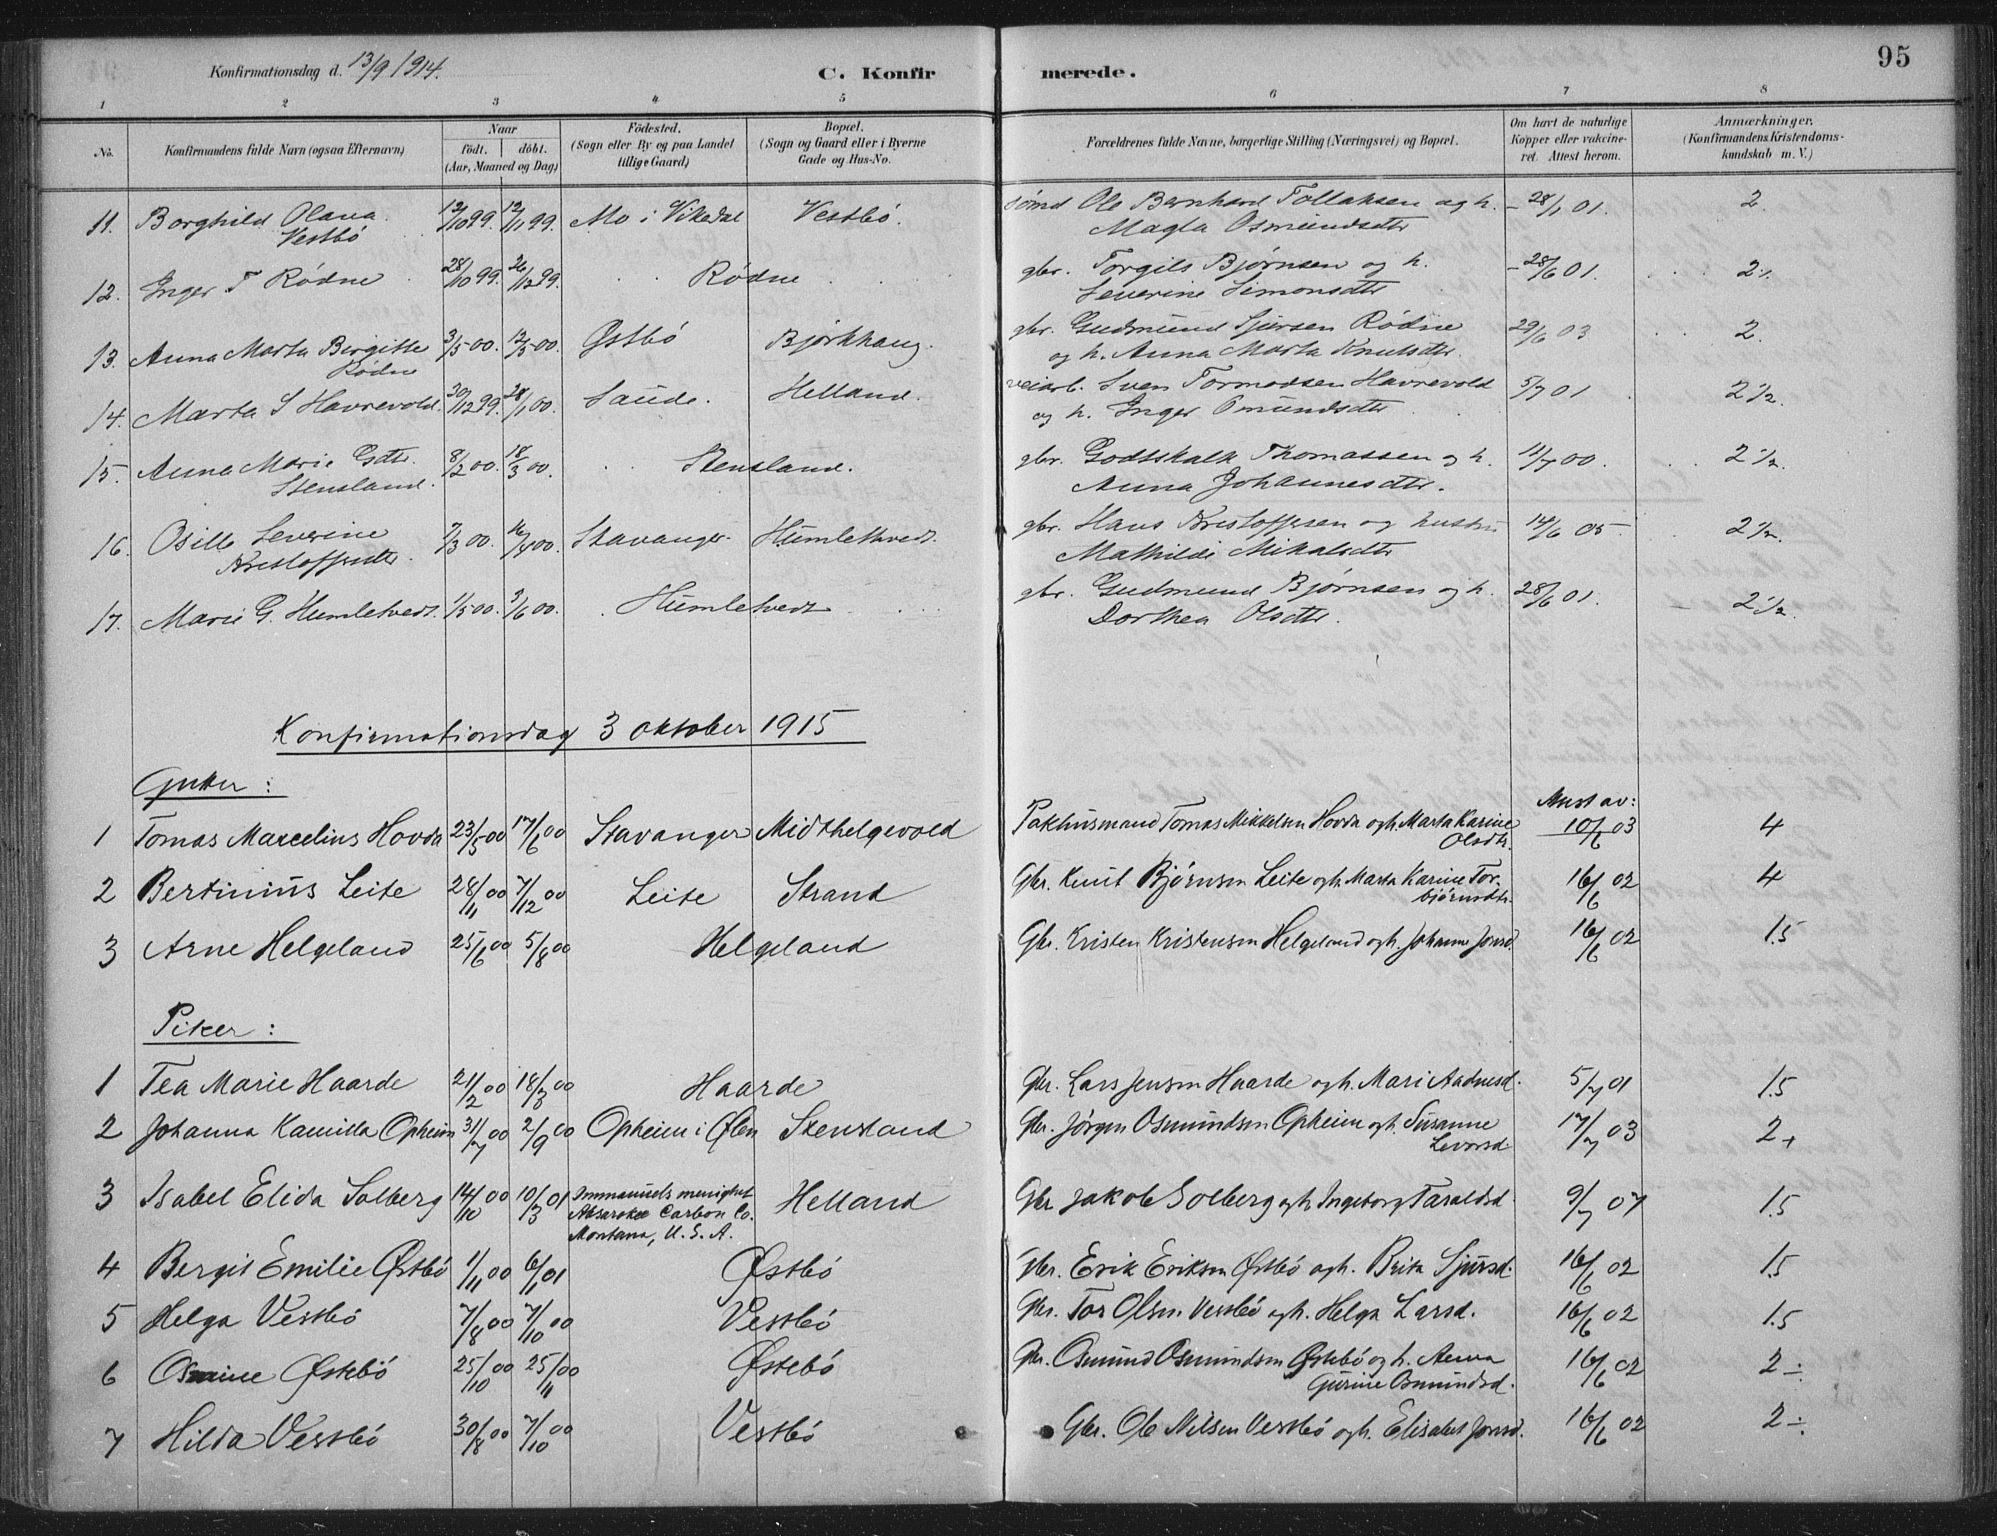 Konfirmationsdag d. 13/9 1914.
C. Konfir merede. 95
1 2 3 4 5 6 7 8
No. Konfirmandens fulde Navn (ogsaa Efternavn) Naar födt. döbt. (Aar, Maaned og Dag) Födested. (Sogn eller By og paa Landet tillige Gaard) Bopæl. (Sogn og Gaard eller i Byerne Gade og Hus-No. Forældrenes fulde Navne, borgerlige Stilling (Næringsvei) og Bopæl. Om havt de naturlige Kopper eller vakcineret. Attest herom. Anmærkninger. (Konfirmandens Kristendomskundskab m. V.)
11. Borghild Olava 12/10 99. 12/11 99. Mo i Vikedal Vestbö. Ole Bernhard Tollaksen og h. - 28/1 01. 2.
Vestbö Magla Osmundsdtr
12. Inger T Rødne 28/10 99. 26/12 99. Rødne gbr. Torgils Bjørnsen og h. - 28/6 01. 2 1/2
Severine Simonsdtr
13. Anna Marta Bergitte 3/5 00. 12/5 00. Østbö Bjørkhaug. gbr. Gudmund Sjursen Rødne 29/6 03 2.
Rødne og h. Anna Marta Knutsdtr.
14. Marta S Havrevold. 30/12 99. 28/1 00. Saude. Helland. veiarb. Sven Tormodsen Havrevold 5/7 01 2 1/2.
og h. Inger Omundsdtr
15. Anna Marie Gdtr. 8/2 00. 18/3 00. Stensland. gbr. Godtskalk Thomassen og h. 11/7 00. 2 1/2
Stensland. Anna Johannesdtr.
16. Osille Severine 7/3 00. 16/4 00. Stavanger. Humletvedt. gbr. Hans Kristoffersen og hustru 14/6 05. 2 1/2.
Kristoffersdtr. Mathilde Mikalsdtr
17. Marie G. Humletvedt. 1/5 00. 3/6 00. Humletvedt gbr. Gudmund Bjørnsen og h. 28/6 01. 2 1/2
Dorthea Olsdtr.
Konfirmationsdag 3 oktober 1915
Gutter:
1 Tomas Marcelius Hovda 23/5 00 17/6 00 Stavanger Midthelgevold Pakhusmand Tomas Mikkelsen Hovda og h. Marta Karine Olsdtr. Attest av: 10/6 03 4
2 Bertinius Leite 28/11 00 7/12 00 Leite Strand Gbr. Knut Bjørnsen Leite og h. Marta Karine Torbjørnsdtr. 16/6 02 4
3 Arne Helgeland 25/6 00 5/8 00 Helgeland Gbr. Kristen Kristensen Helgeland og h. Johanne Jonsd. 16/6 02 1.5
Piker:
1 Tea Marie Haarde 21/2 00 18/3 00 Haarde Gbr. Lars Jensen Haarde og h. Mari Aadnesd. 5/7 01 1.5
2 Johanna Kamilla Opheim 31/7 00 2/9 00 Opheim i Ølen Stensland Gbr. Jörgen Osmundsen Opheim og h. Susanne Levorsd. 17/7 03 2+
3 Isabel Elida Solberg 14/10 00 10/3 01 Immanuels menighet Absarokee Carbon Co. Montana, U.S.A. Helland Gbr Jakob Solberg og h Ingeborg Taraldsd. 9/7 07 1.5
4 Bergit Emilie Østbö 1/11 00 6/1 01 Østbö Gbr. Erik Eriksen Østbö og h. Brita Sjursd. 16/6 02 1.5
5 Helga Vestbö 7/8 00 7/10 00 Vestbö Gbr. Tor Olsen Vestbö og h. Helga Larsd. 16/6 02 1.5
6 Osmine Østebö 25/10 00 25/11 00 Østebö Gbr. Osmund Osmundsen Østebö og h. Anna Gurine Osmundsd. 16/6 02 2 ÷
7 Hilda Vestbö 30/8 00 7/10 00 Vestbö Gbr. Ole Nilsen Vestbö og h. Elisabet Jonsd. 16/6 02 2 ÷